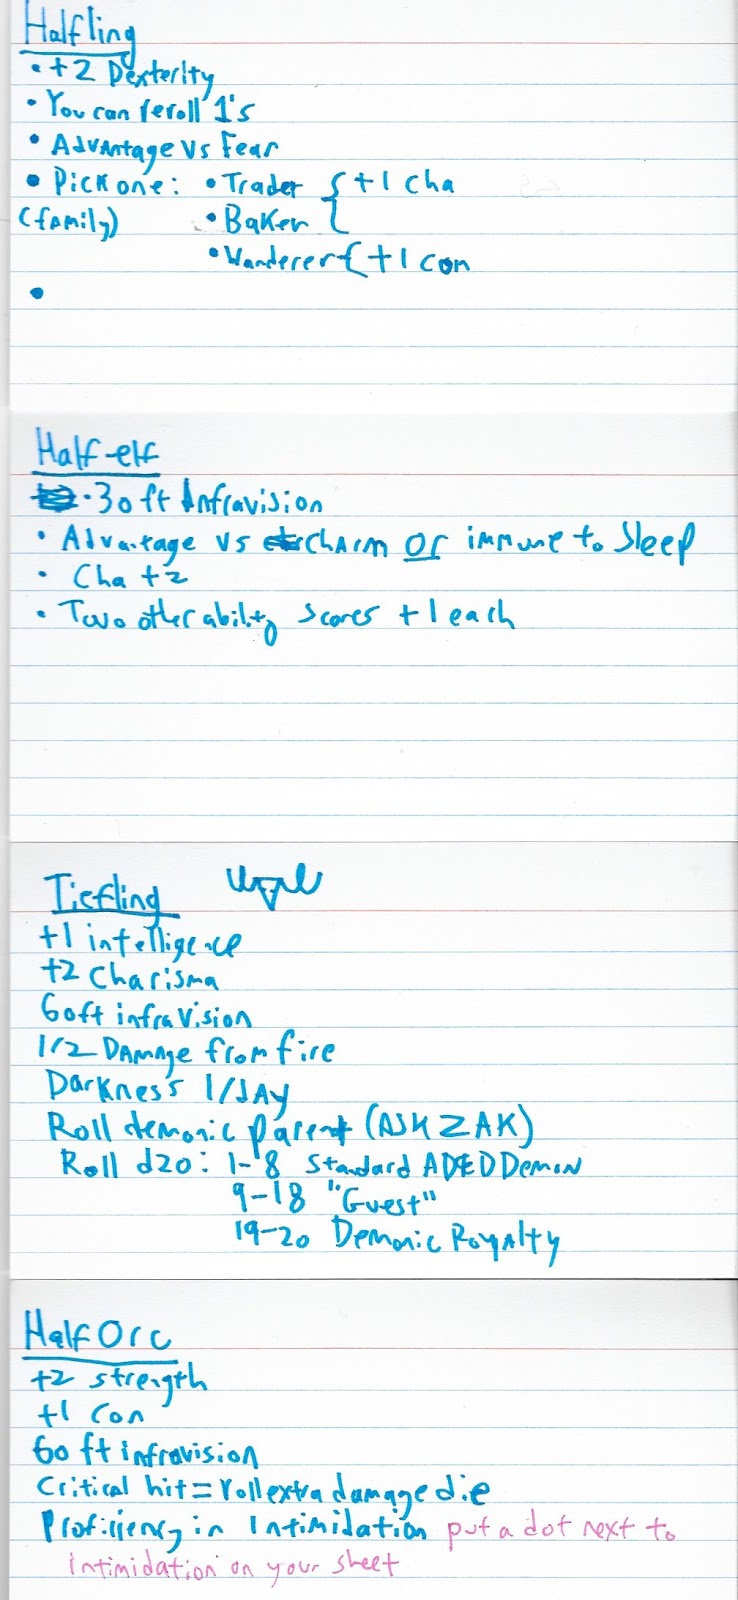 Halfling
• +2 Dexterity
• You can reroll 1's
• Advantage vs Fear
• Pick one: • Trader { +1 cha
(family) • Baker {
• Wanderer { +1 con
•
Half-elf
• 30 ft Infravision
• Advantage vs charm or immune to sleep
• Cha +2
• Two other ability scores +1 each
Tiefling
+1 intelligence
+2 Charisma
60ft infravision
1/2 Damage from fire
Darkness 1/day
Roll demonic parent (ASK ZAK)
Roll d20: 1-8 Standard AD&D Demon
9-18 "Guest"
19-20 Demonic Royalty
Half Orc
+2 strength
+1 Con
60 ft infravision
Critical hit = roll extra damage die
Proficiency in Intimidation put a dot next to
intimidation on your sheet